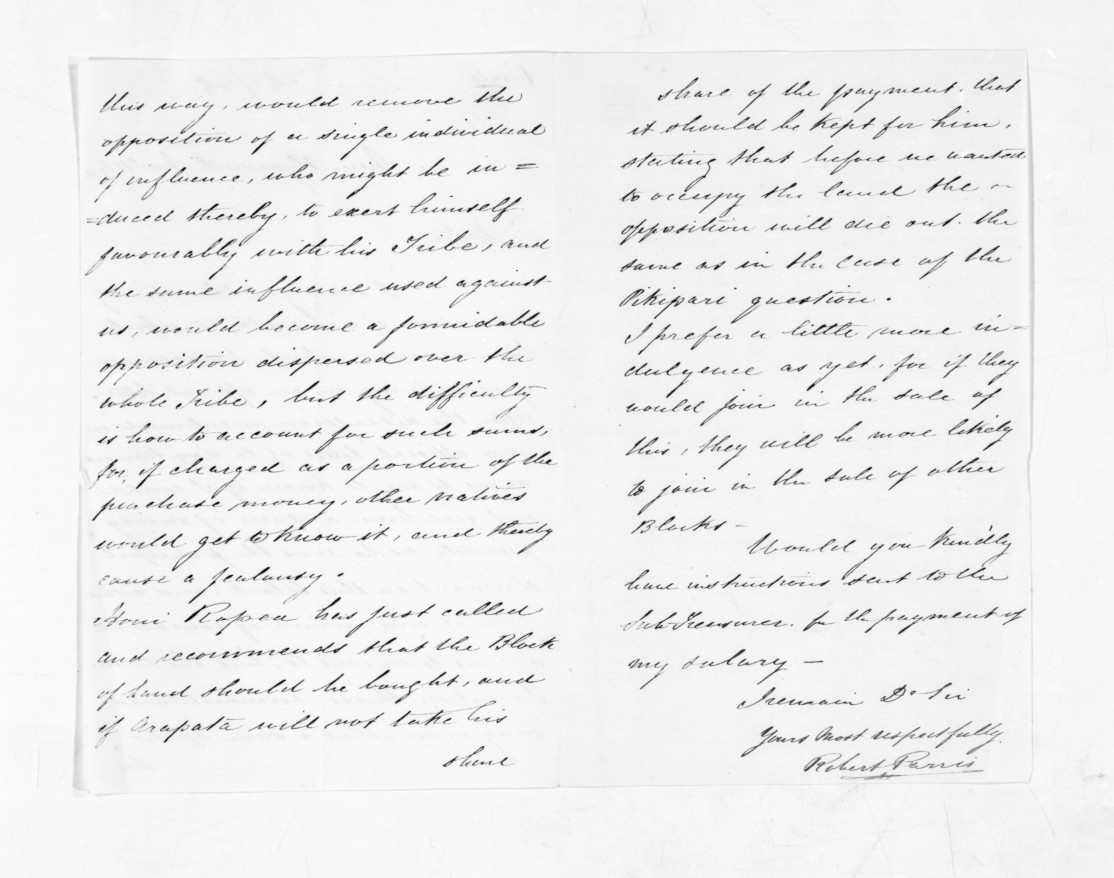 this way, would remove the
opposition of a single individual
of influence, who might be in=
=duced thereby, to exert himself
favourably with his Tribe, and
the same influence used against
us, would become a formidable
opposition dispersed over the
whole Tribe, but the difficulty
is how to account for such sums,
for, if charged as a portion of the
purchase money, other natives
would get to know it, and thereby
cause a jealousy.
Honi Ropea has just called
and recommends that the Block
of land should be bought, and
if Arapata will not take his
share
share of the payment, that
it should be kept for him,
stating that before we wanted
to occupy the land the
opposition will die out the
same as in the case of the
Pikipari question.
I prefer a little more in=
dulgence as yet, for if they
would join in the sale of
this, they will be more likely
to join in the sale of other
Blocks -
Would you kindly
have instructions sent to the
Sub Treasurer, for the payment of
my salary -
I remain Dr Sir
Yours most respectfully,
Robert Parris